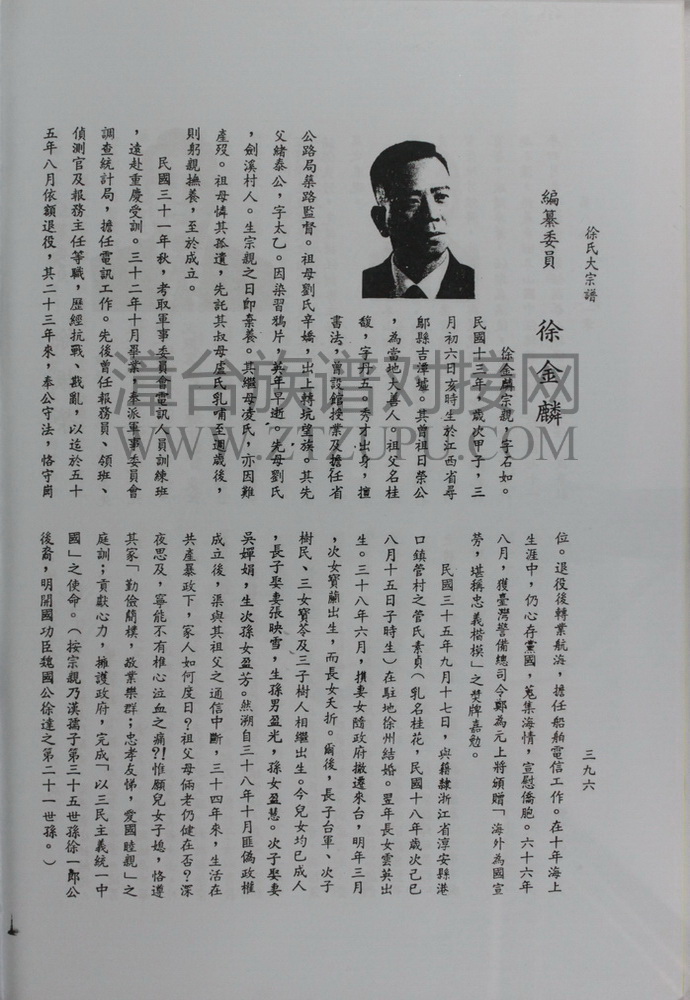 徐氏大宗譜
三九六
編纂委員　徐金麟
徐金麟宗親，字石如。
民國十三年，歲次甲子，三
月初六日亥時生於江西省尋
鄔縣吉潭墟。其曾祖日榮公
，為當地大善人。祖父名桂
馥，字丹五。秀才出身，擅
書法，曾設館授業及擔任省
公路局築路監督。祖母劉氏辛嬌，出上轉坑望族。其先
父緒泰公，字太乙。因染習鴉片，英年早逝。先母劉氏
，劍溪村人。生宗親之日即棄養。其繼母凌氏，亦因難
產歿。祖母憐其孤遺，先託其叔母盧氏乳哺至週歲後，
則躬親撫養，至於成立。
民國三十一年秋，考取軍事委員會電訊人員訓練班
，遠赴重慶受訓。三十二年十月畢業，奉派軍事委員會
調查統計局，擔任電訊工作。先後曾任報務員、領班、
偵測官及報務主任等職，歷經抗戰、戡亂，以迄於五十
五年八月依額退役，其二十三年來，奉公守法，恪守崗
位。退役後轉業航海，擔任船舶電信工作。在十年海上
生涯中，仍心存黨國，蒐集海情，宣慰僑胞。六十六年
八月，獲臺灣警備總司令鄭為元上將頒贈「海外為國宣
勞，堪稱忠義楷模」之獎牌嘉勉。
民國三十五年九月十七日，與籍隸浙江省淳安縣港
口鎮管村之管氏素貞（乳名桂花，民國十八年歲次己巳
八月十五日子時生）在駐地徐州結婚。翌年長女雲英出
生。三十八年六月，携妻女隨政府撤遷來台，明年三月
，次女寶蘭出生，而長女夭折。爾後，長子台軍、次子
樹民、三女寶苓及三子樹人相繼出生。今兒女均已成人
，長子娶妻張映雪，生孫男盈光，孫女盈慧。次子娶妻
吳嬋娟，生次孫女盈芳。然溯自三十八年十月匪偽政權
成立後，渠與其祖父之通信中斷，三十四年來，生活在
共產暴政下，家人如何度日？祖父母倆老仍健在否？深
夜思及，寧能不有椎心泣血之痛？！惟願兒女子媳，恪遵
其家「勤儉簡樸，敬業樂群；忠孝友悌，愛國睦親」之
庭訓；貢獻心力，擁護政府，完成「以三民主義統一中
國」之使命。（按宗親乃漢孺子第三十五世孫徐一郎公
後裔，明開國功臣魏國公徐達之第二十一世孫。）
漳台族谱对接网
WWW.ZTZUPU.COM